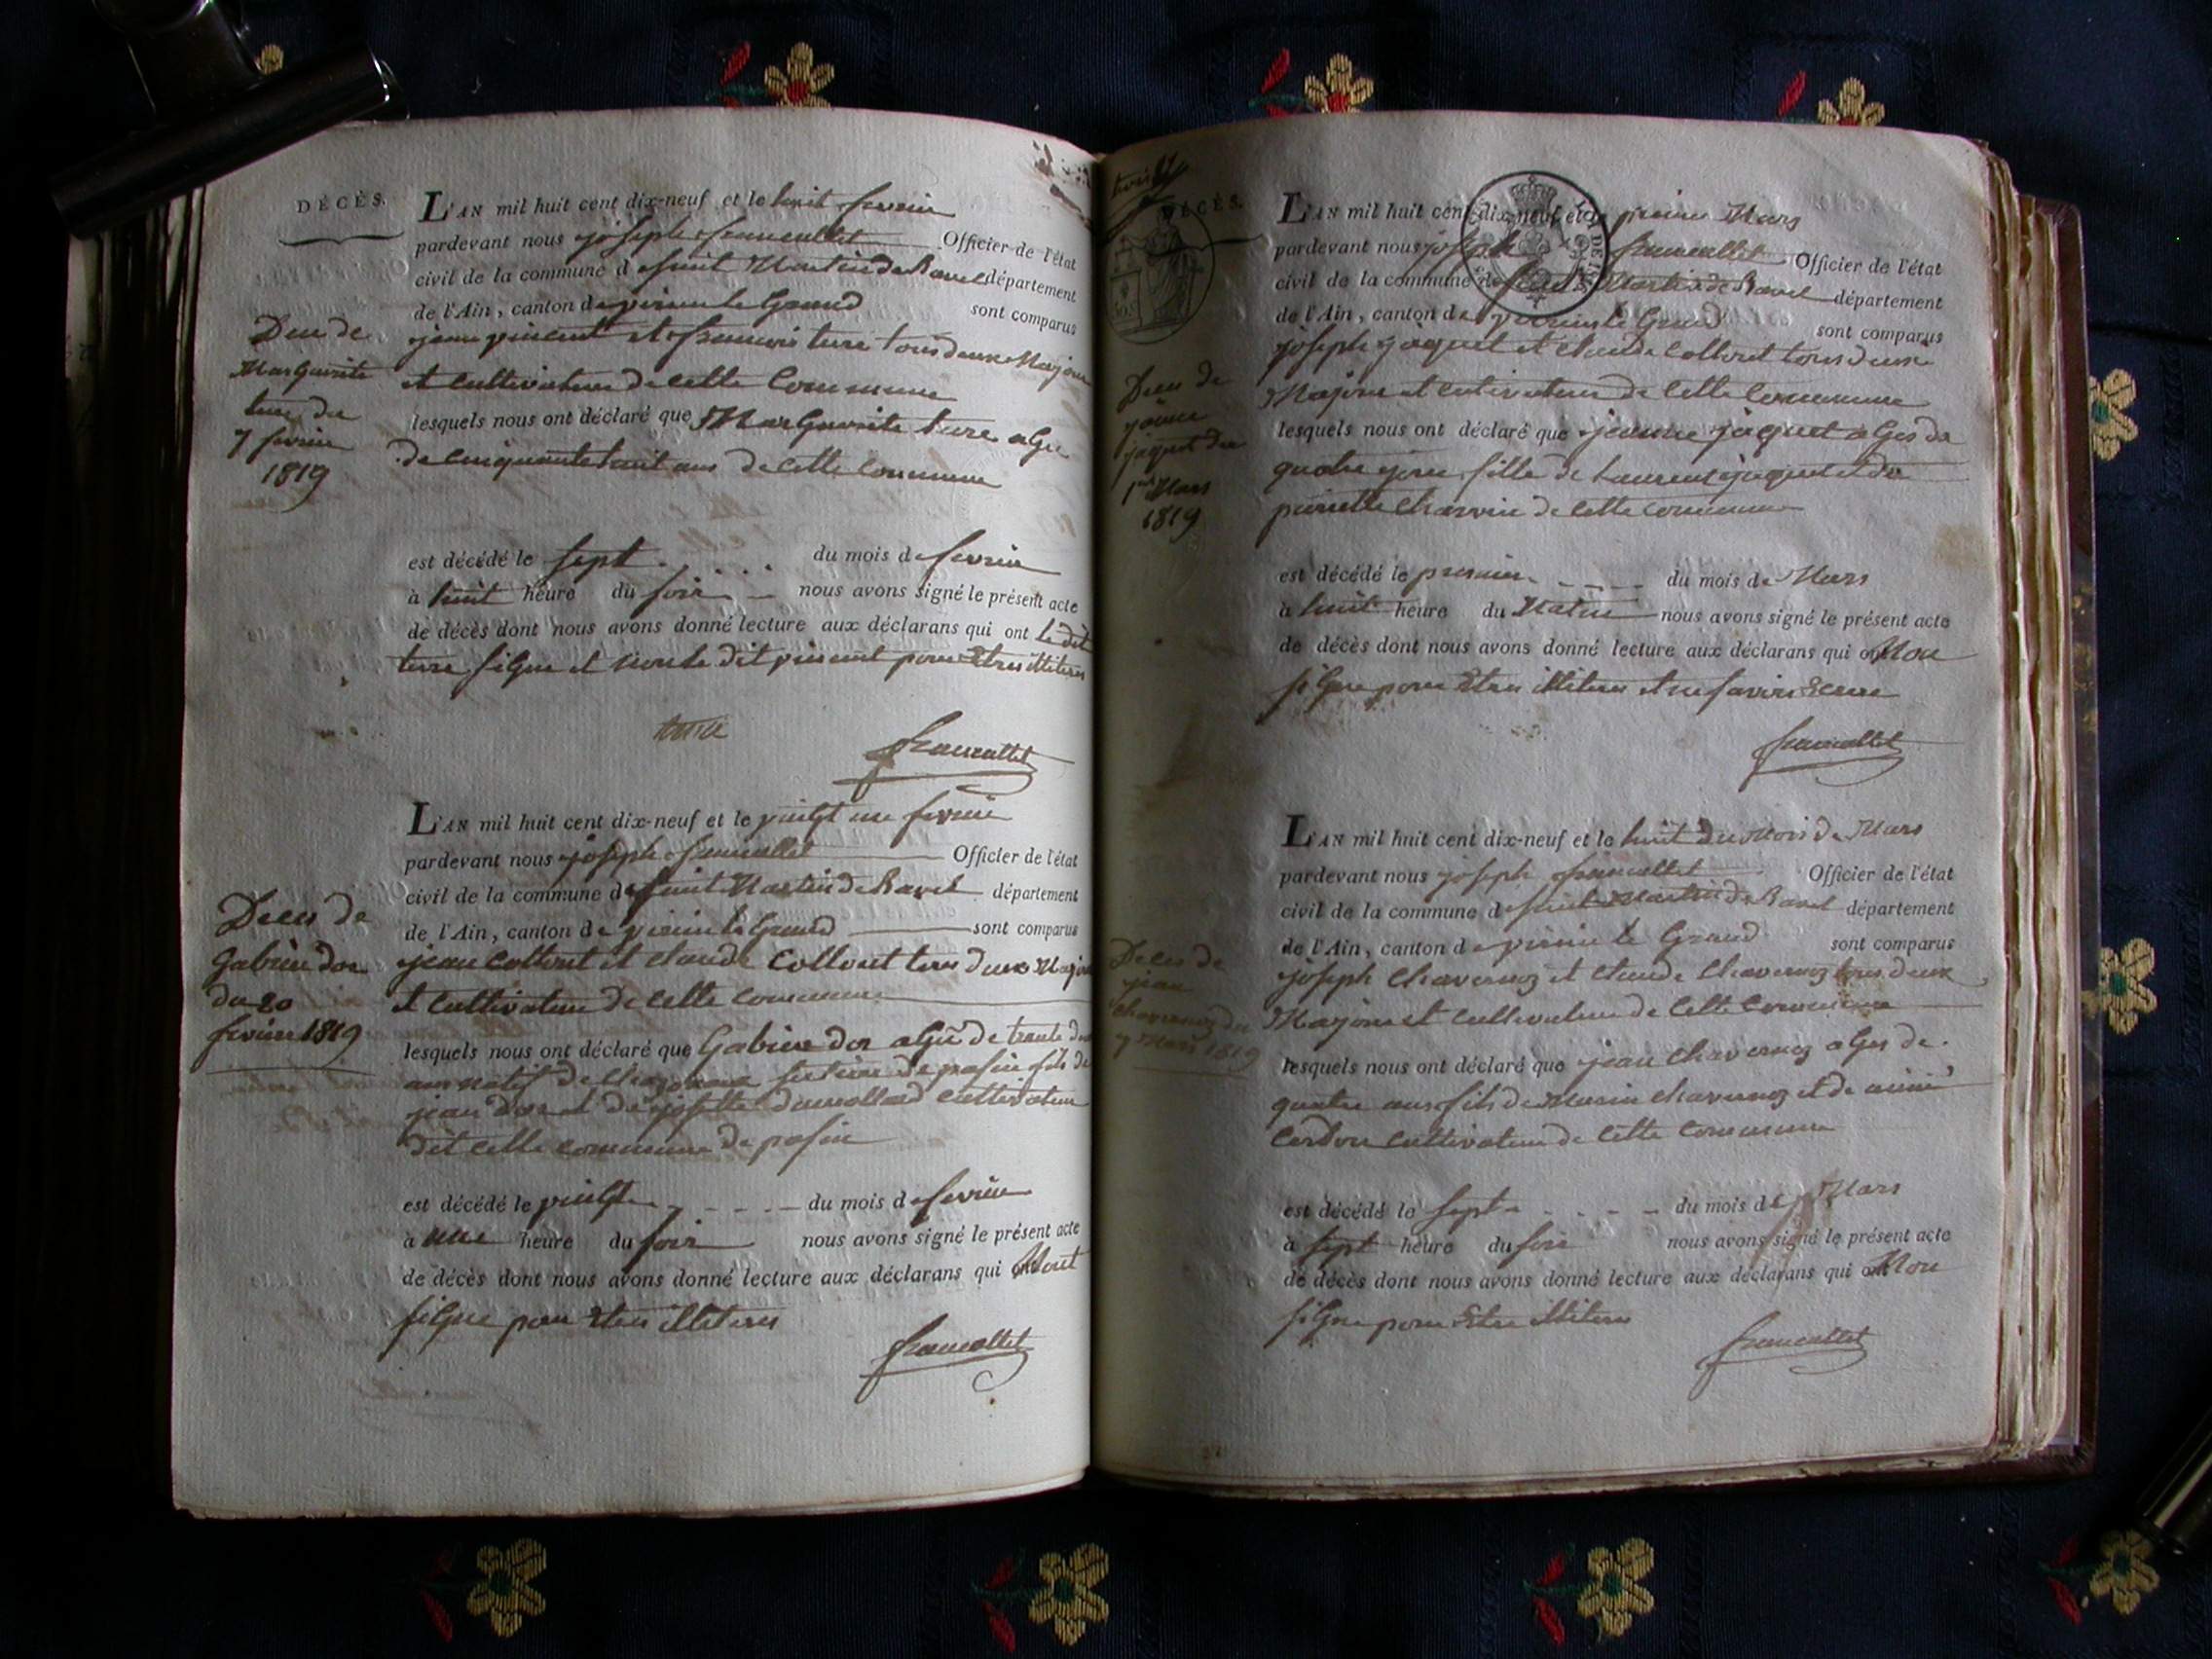 DÉCÈS.
L'AN mil huit cent dix-neuf et le huit fevrier
pardevant nous joseph francallet Officier de l'état
civil de la commune d saint Martin de Bavel département
de l'Ain, canton de virieu le Grand sont comparus
jean vincent et francois ture tous deux Majeur
et cultivateur de cette Commune
lesquels nous ont déclaré que Marguerite ture agée
de cinquante huit ans de cette Commune
est décédé le sept du mois de fevrier
à huit heure du soir nous avons signé le présent acte
de décès dont nous avons donné lecture aux déclarans qui ont le dit
ture signe et nonle dit vincent pour Etres illiteres
francallet
Deces de
Marguerite
ture du
7 fevrier
1819
L'AN mil huit cent dix-neuf et le vingt un fevrier
pardevant nous joseph francallet Officier de l'état
civil de la commune de saint Martin de Bavel département
de l'Ain, canton de virieu le Grand sont comparus
jean Collout et claude Collout tous deux Majeur
et cultivateur de cette commune
lesquels nous ont déclaré que Gabriel dor agé de trente
ans natif de fils de
jean dor et de josette cultivateur
dit cette commune de
est décédé le vingt du mois de fevrier
à une heure du soir nous avons signé le présent acte
de décès dont nous avons donné lecture aux déclarans qui ont Nont
signe pour Etres illiteres
francallet
Deces de
Gabriel dor
du 20
fevrier 1819
DÉCÈS.
L'AN mil huit cent dix-neuf et le premier Mars
pardevant nous joseph francallet Officier de l'état
civil de la commune de saint Martin de Bavel département
de l'Ain, canton de virieu le Grand sont comparus
joseph jaquet et claude Collout tous deux
Majeur et cultivateur de cette Commune
lesquels nous ont déclaré que jeanne jaquet agés de
quatre jour fille de Laurent jaquet et de
pierrette Charvin de cette commune
est décédé le premier du mois de Mars
à huit heure du Matin nous avons signé le présent acte
de décès dont nous avons donné lecture aux déclarans qui ont Non
signe pour Etres illiteres et ne savoir Ecrire
francallet
Deces de
jeanne
jaquet du
1er Mars
1819
L'AN mil huit cent dix-neuf et le huit du Mois de Mars
pardevant nous joseph francallet Officier de l'état
civil de la commune d saint Martin de Bavel département
de l'Ain, canton de virieu le Grand sont comparus
joseph Chavernoz et claude Chavernoz tous deux
Majeur et cultivateur de cette Commune
lesquels nous ont déclaré que jean Chavernoz agés de
quatre ans fils de Marin Chavernoz et de aimé
Cordon cultivateur de cette Commune
est décédé le sept du mois de Mars
à sept heure du soir nous avons signé le présent acte
de décès dont nous avons donné lecture aux déclarans qui ont Non
signe pour Etre illitere
francallet
Deces de
jean
chavernoz du
7 Mars 1819